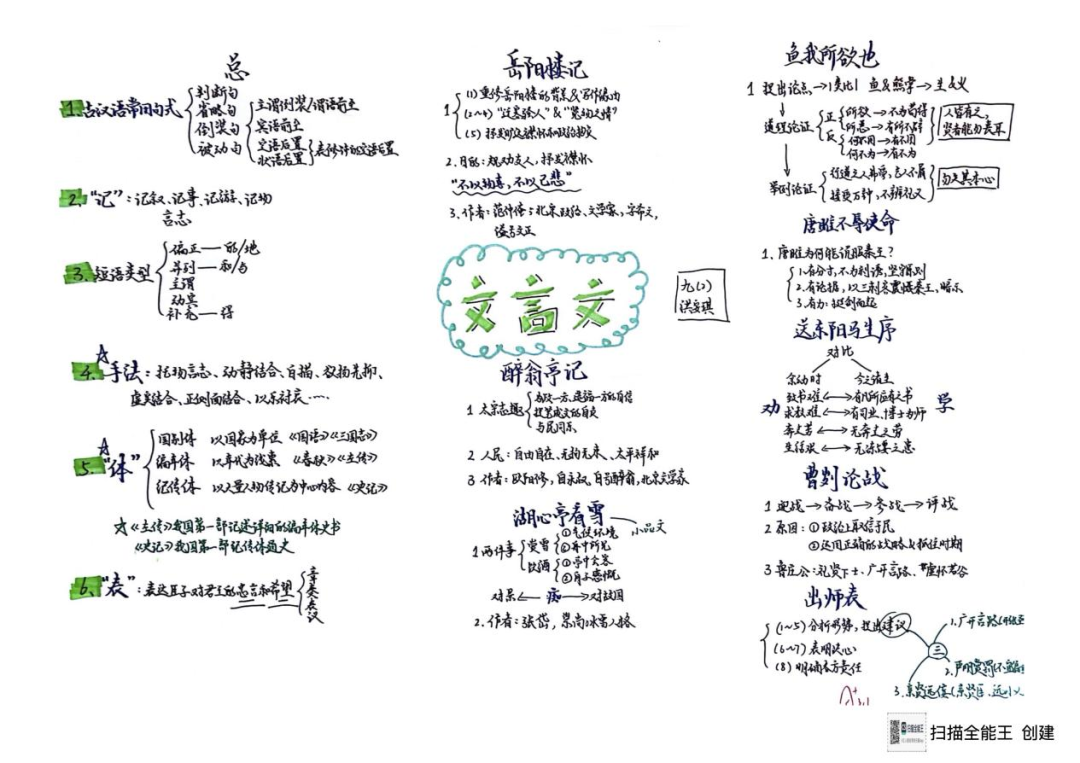 总
1.古汉语常用句式
判断句
省略句
倒装句
被动句
主谓倒装/谓语前至
宾语前至
定语后置
状语后置
2.“记”:记叙、记事、记游、记物
言志
3.短语类型
偏正——的/地
并列——和/与
主谓
动宾
补充——得
4.手法:托物言志、动静结合、白描、欲扬先抑、
虚实结合、正侧面结合、以乐衬哀……
5.“体”
国别体 以国家为单位 《国语》《三国志》
编年体 以年代为线索 《春秋》《左传》
纪传体 以大量人物传记为中心内容 《史记》
☆《左传》我国第一部记述详细的编年体史书
《史记》我国第一部纪传体通史
6.“表”:表达臣子对君主的忠言和希望
章
奏
表
议
岳阳楼记
1
(1)重修岳阳楼的背景&写作缘由
(2~4)“迁客骚人”&“览物之情”
2.目的:规劝友人,抒发襟怀
“不以物喜,不以己悲”
3.作者:范仲淹:北宋政治、文学家,字希文,
谥号文正
文言文
九(2)
醉翁亭记
1 太守志趣
与民同乐
2 人民:自由自在、无拘无束、太平祥和
3 作者:欧阳修,自永叔,自号醉翁,北宋文学家
湖心亭看雪——小品文
1 两件事
赏雪
①气候环境
②舟中所见
饮酒
①亭中会客
②舟子感慨
对景←痴→对故国
2.作者:张岱,崇尚冰雪人格
鱼我所欲也
1 提出论点→类比 鱼&熊掌→生&义
道理论证
正
所欲→不为苟得
所恶→有所不辟
反
何不用→有不用
何不为→有不为
人皆有之,
贤者能勿丧耳
举例论证
行道之人弗受,乞人不屑
接受万钟,不辨礼义
勿失其本心
唐雎不辱使命
1.唐雎为何能说服秦王?
3.有力:挺剑而起
送东阳马生序
对比
余幼时 今诸生
劝
致书难←→有代所应有之书
求教难←→有司业、博士为师
奔走苦←→无奔走之劳
生活艰←→无冻馁之患
学
曹刿论战
1 迎战→备战→参战→评战
2 原因:①政治上取信于民
②运用正确的战略&抓住时期
3 鲁庄公:礼贤下士、广开言路、虚怀若谷
出师表
(1~5)分析形势,提出建议
(6~7)表明决心
(8)明确各方责任
三
1.广开言路
2.严明赏罚
3.亲贤远佞
A+
扫描全能王 创建